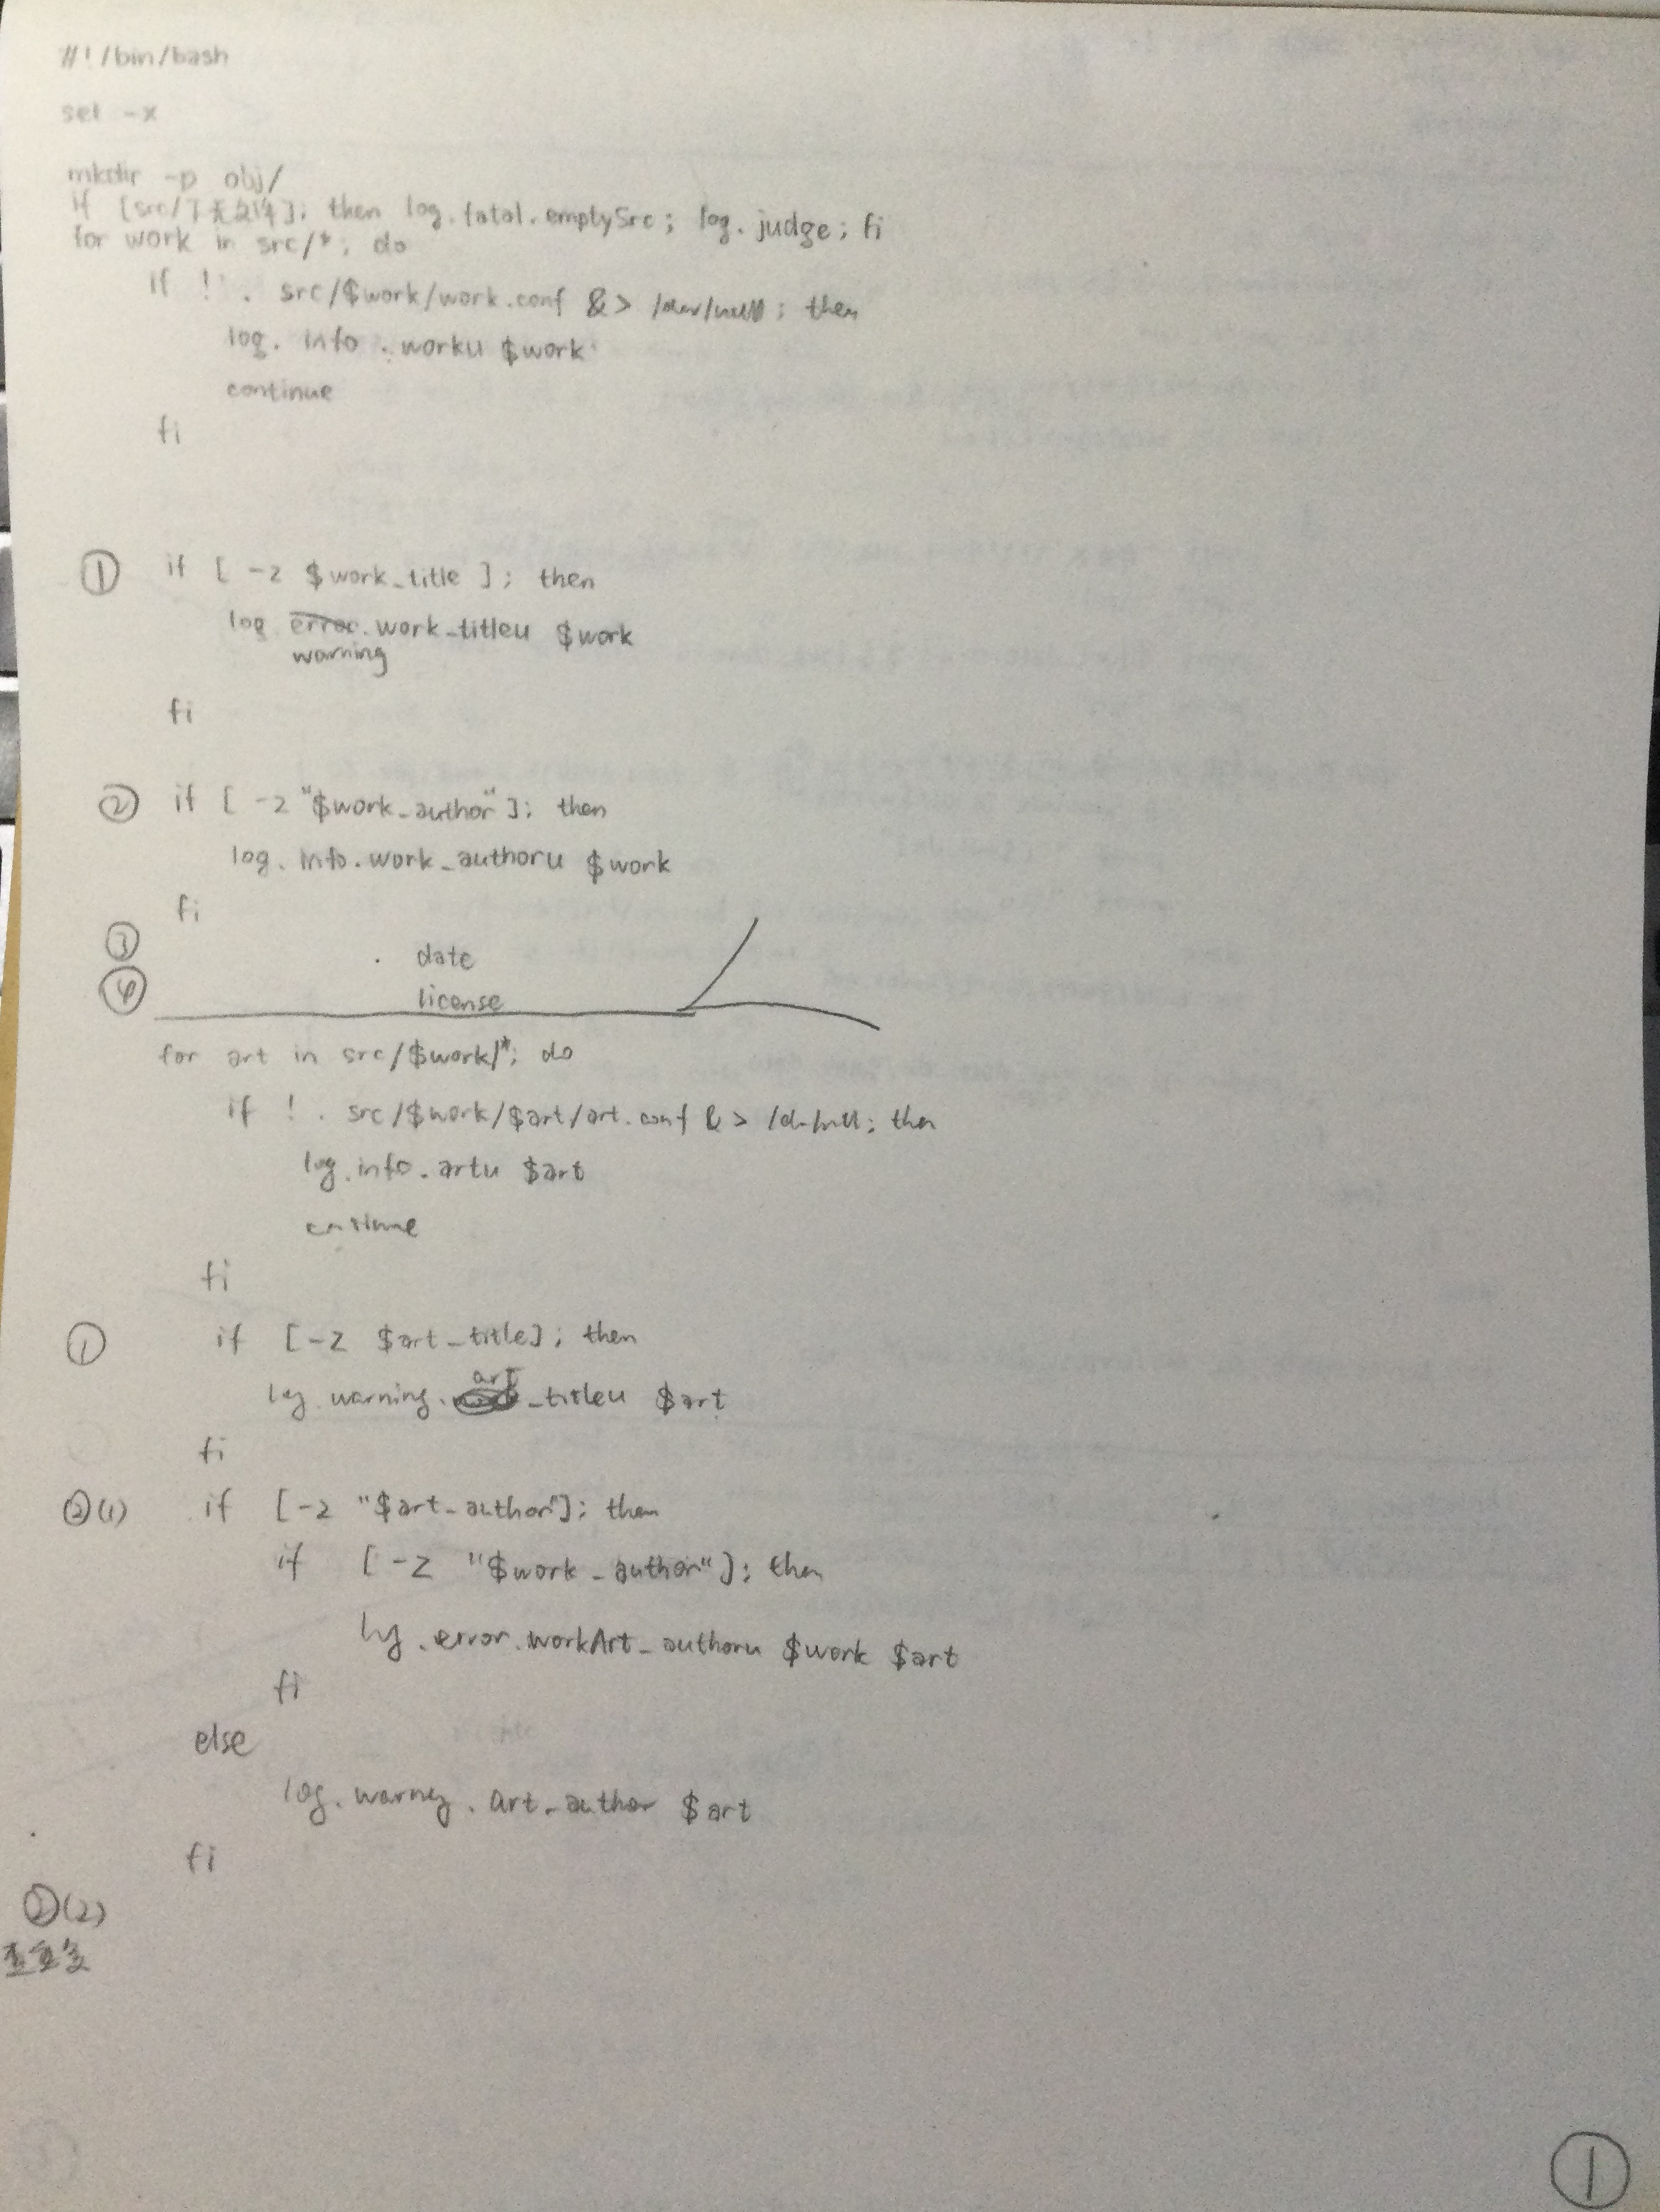 #!/bin/bash
set -x
mkdir -p obj/
if [src/下无文件]; then log.fatal.emptySrc; log.judge; fi
for work in src/*; do
if ! . src/$work/work.conf &> /dev/null; then
log.info.worku $work
continue
fi
① if [ -z $work_title ]; then
log error.work_titleu $work
warning
fi
② if [ -z "$work_author" ]; then
log.info.work_authoru $work
fi
③ date
④ license
for art in src/$work/*; do
if ! . src/$work/$art/art.conf &> /dev/null; then
log.info.artu $art
continue
fi
① if [-z $art_title]; then
art
log warning._titleu $art
fi
②(1) if [-z "$art_author"]; then
if [-z "$work_author"]; then
log.error.workArt_authoru $work $art
fi
else
log.warning.art_author $art
fi
②(2)
①